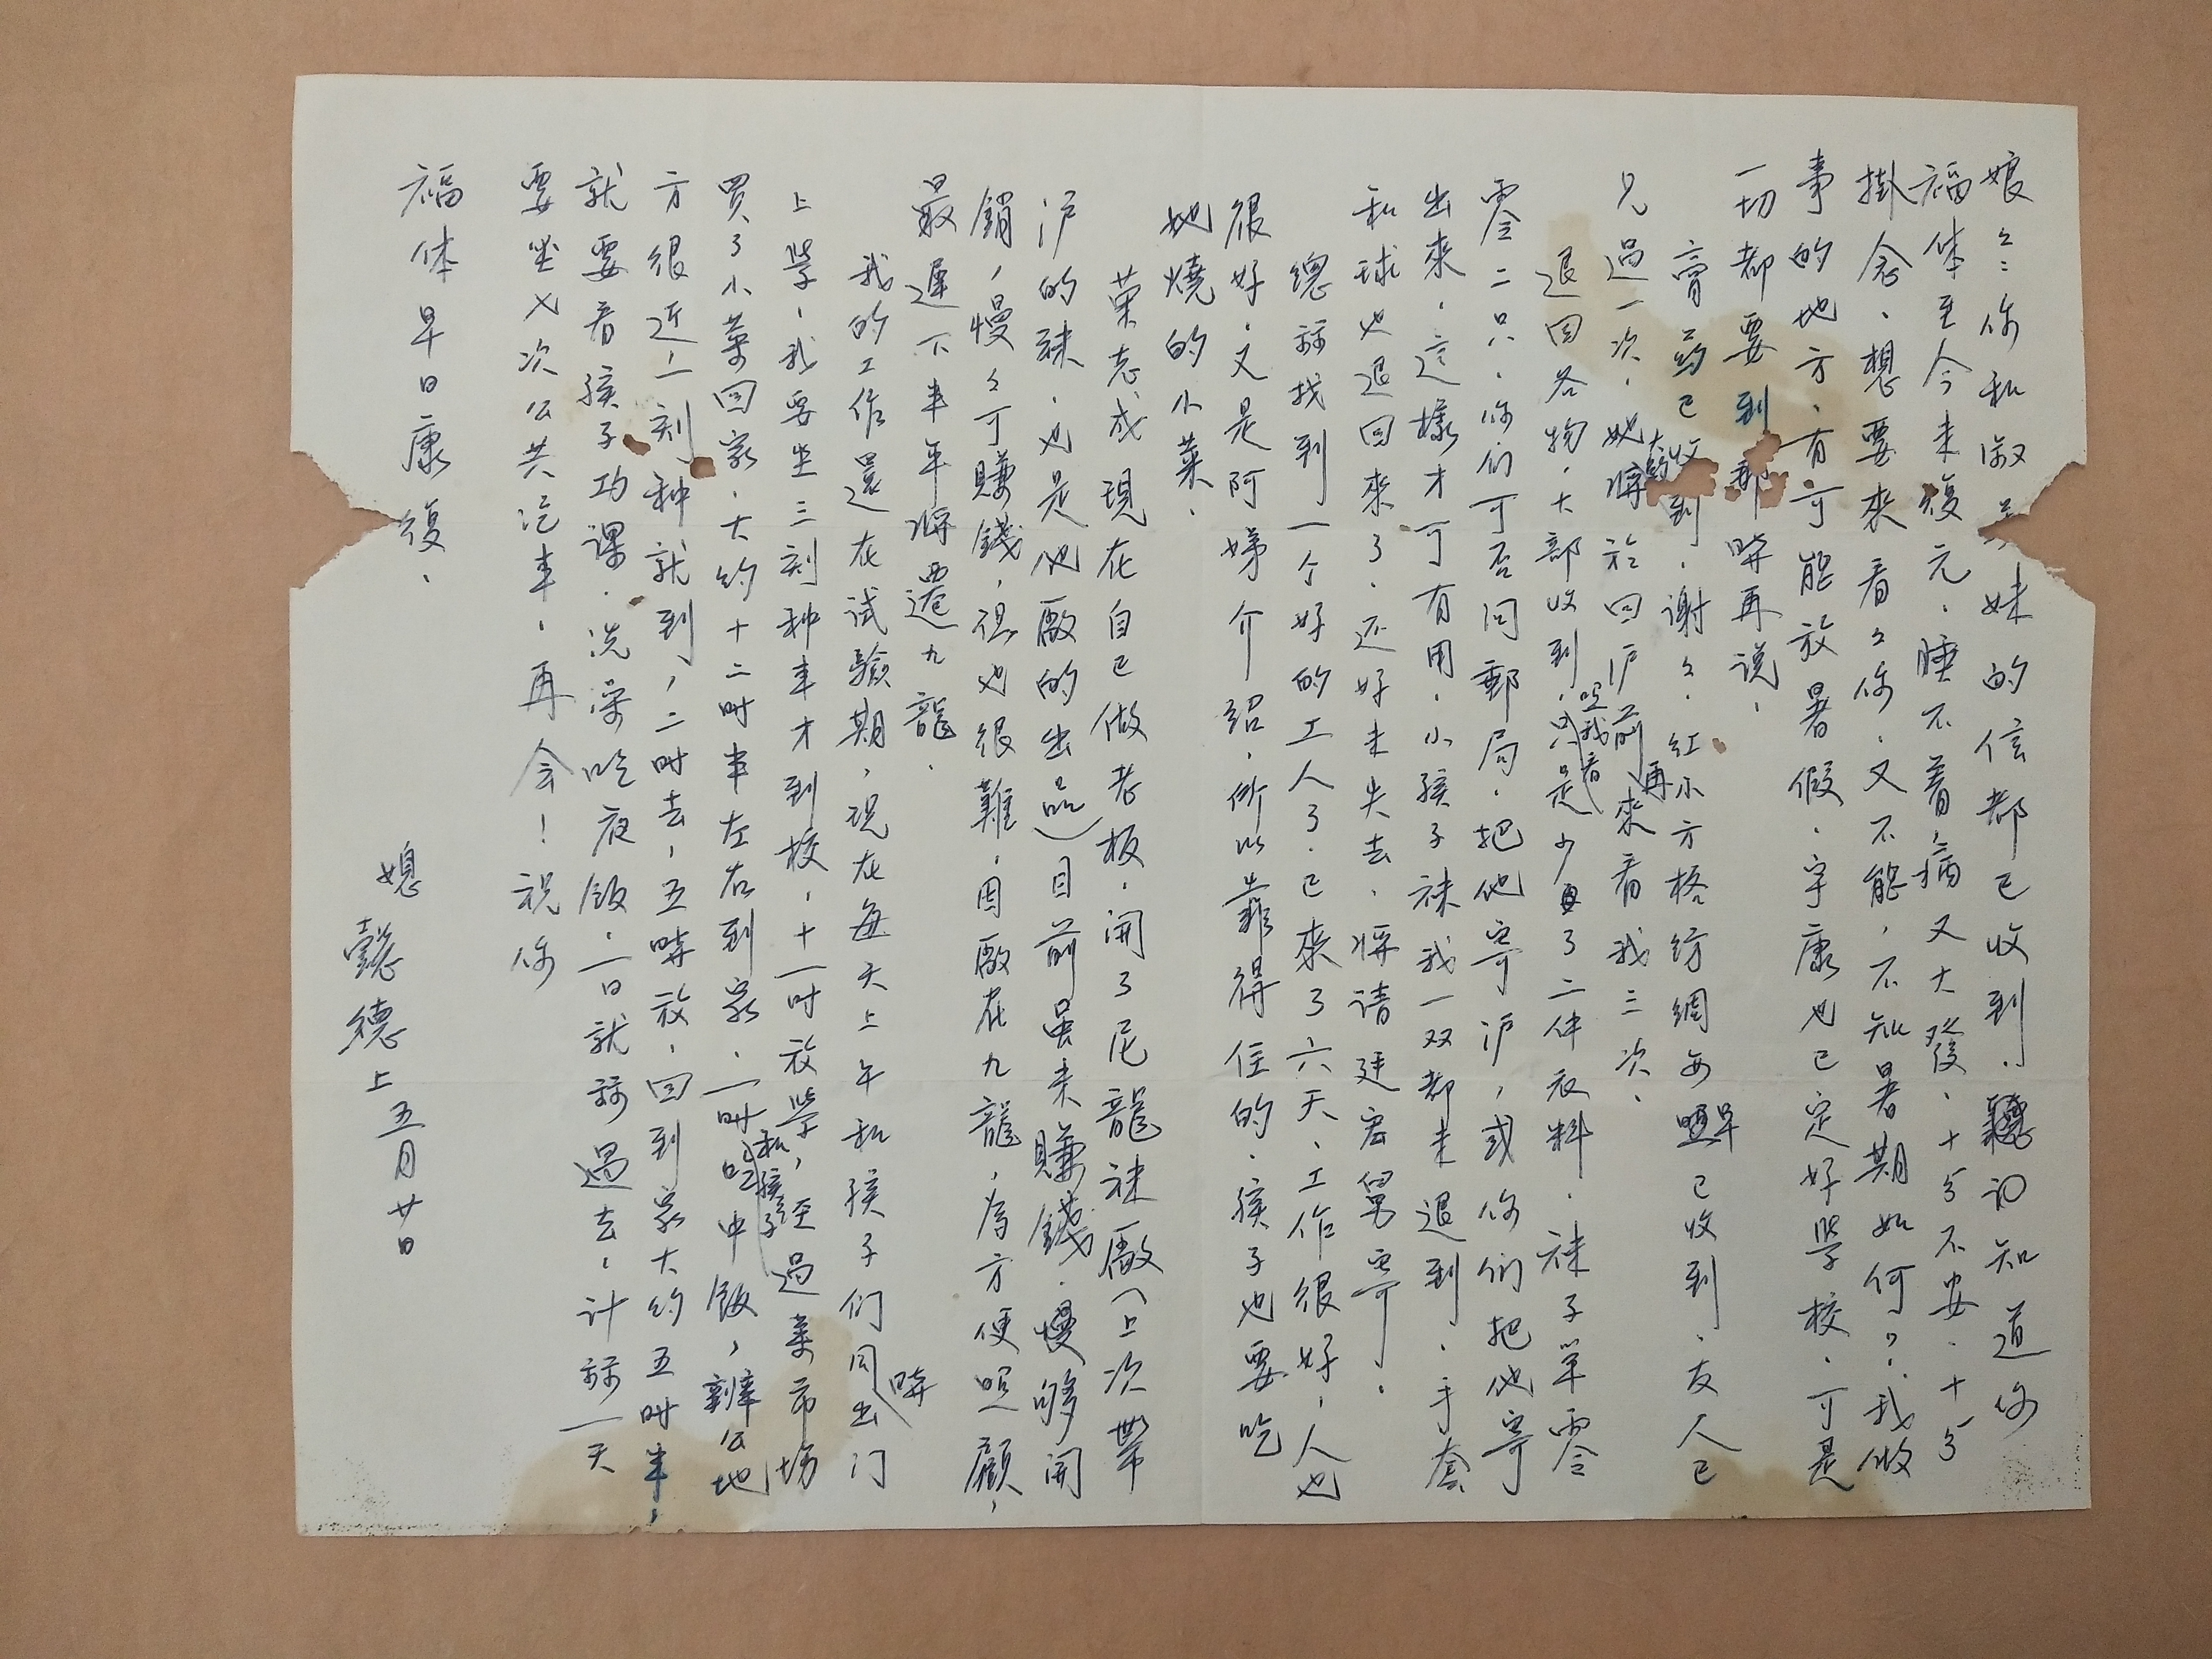 娘々：你和淑妹的信都已收到．聽說知道你
福体至今未復元．睡不着，病又大發．十分不安．十分
掛念．想要來看々你．又不能，不知暑期如何？．我做
事的地方．有可能放暑假．宇康也已定好學校．可是
一切都要到那時再说．
膏药已收到．谢々．红小方格纺绸每照單已收到．友人已
見過一次．她大約將於回沪前再來看我三次．
退回各物．大部收到．只是少了二件衣料．袜子單零
零二只．你们可否问郵局．把他寄沪，或你们把他寄
出來．這樣才可有用．小孩子袜我一双都未退到．手套
和球也退回來了．还好未失去．將请廷宏舅寄．
總算找到一个好的工人了．已來了六天．工作很好，人也
很好．又是阿娣介绍．所以靠得住的．孩子也要吃
她燒的小菜．
葉志成現在自己做老板．開了尼龍袜廠（上次帶
沪的袜．也是他廠的出品）目前虽未賺錢．慢够開
銷，慢々可賺錢，但也很難．因廠在九龍，為方便照顧，
最遲下半年將要遷九龍．
我的工作還在试驗期，現在每天上午和孩子们同時出门
上學．我要坐三刻种車才到校，十一时放學，和孩子經過菜市場
買了小菜回家．大约十二时半左右到家．一时吃中飯，辦公地
方很近，一刻种就到，二时去，五時放．回到家大约五时半，
就要看孩子功课．洗澡吃夜飯．一日就算過去．计算一天
要坐七次公共汽車．再会！祝你
福体早日康復．
媳懿德上五月廿日